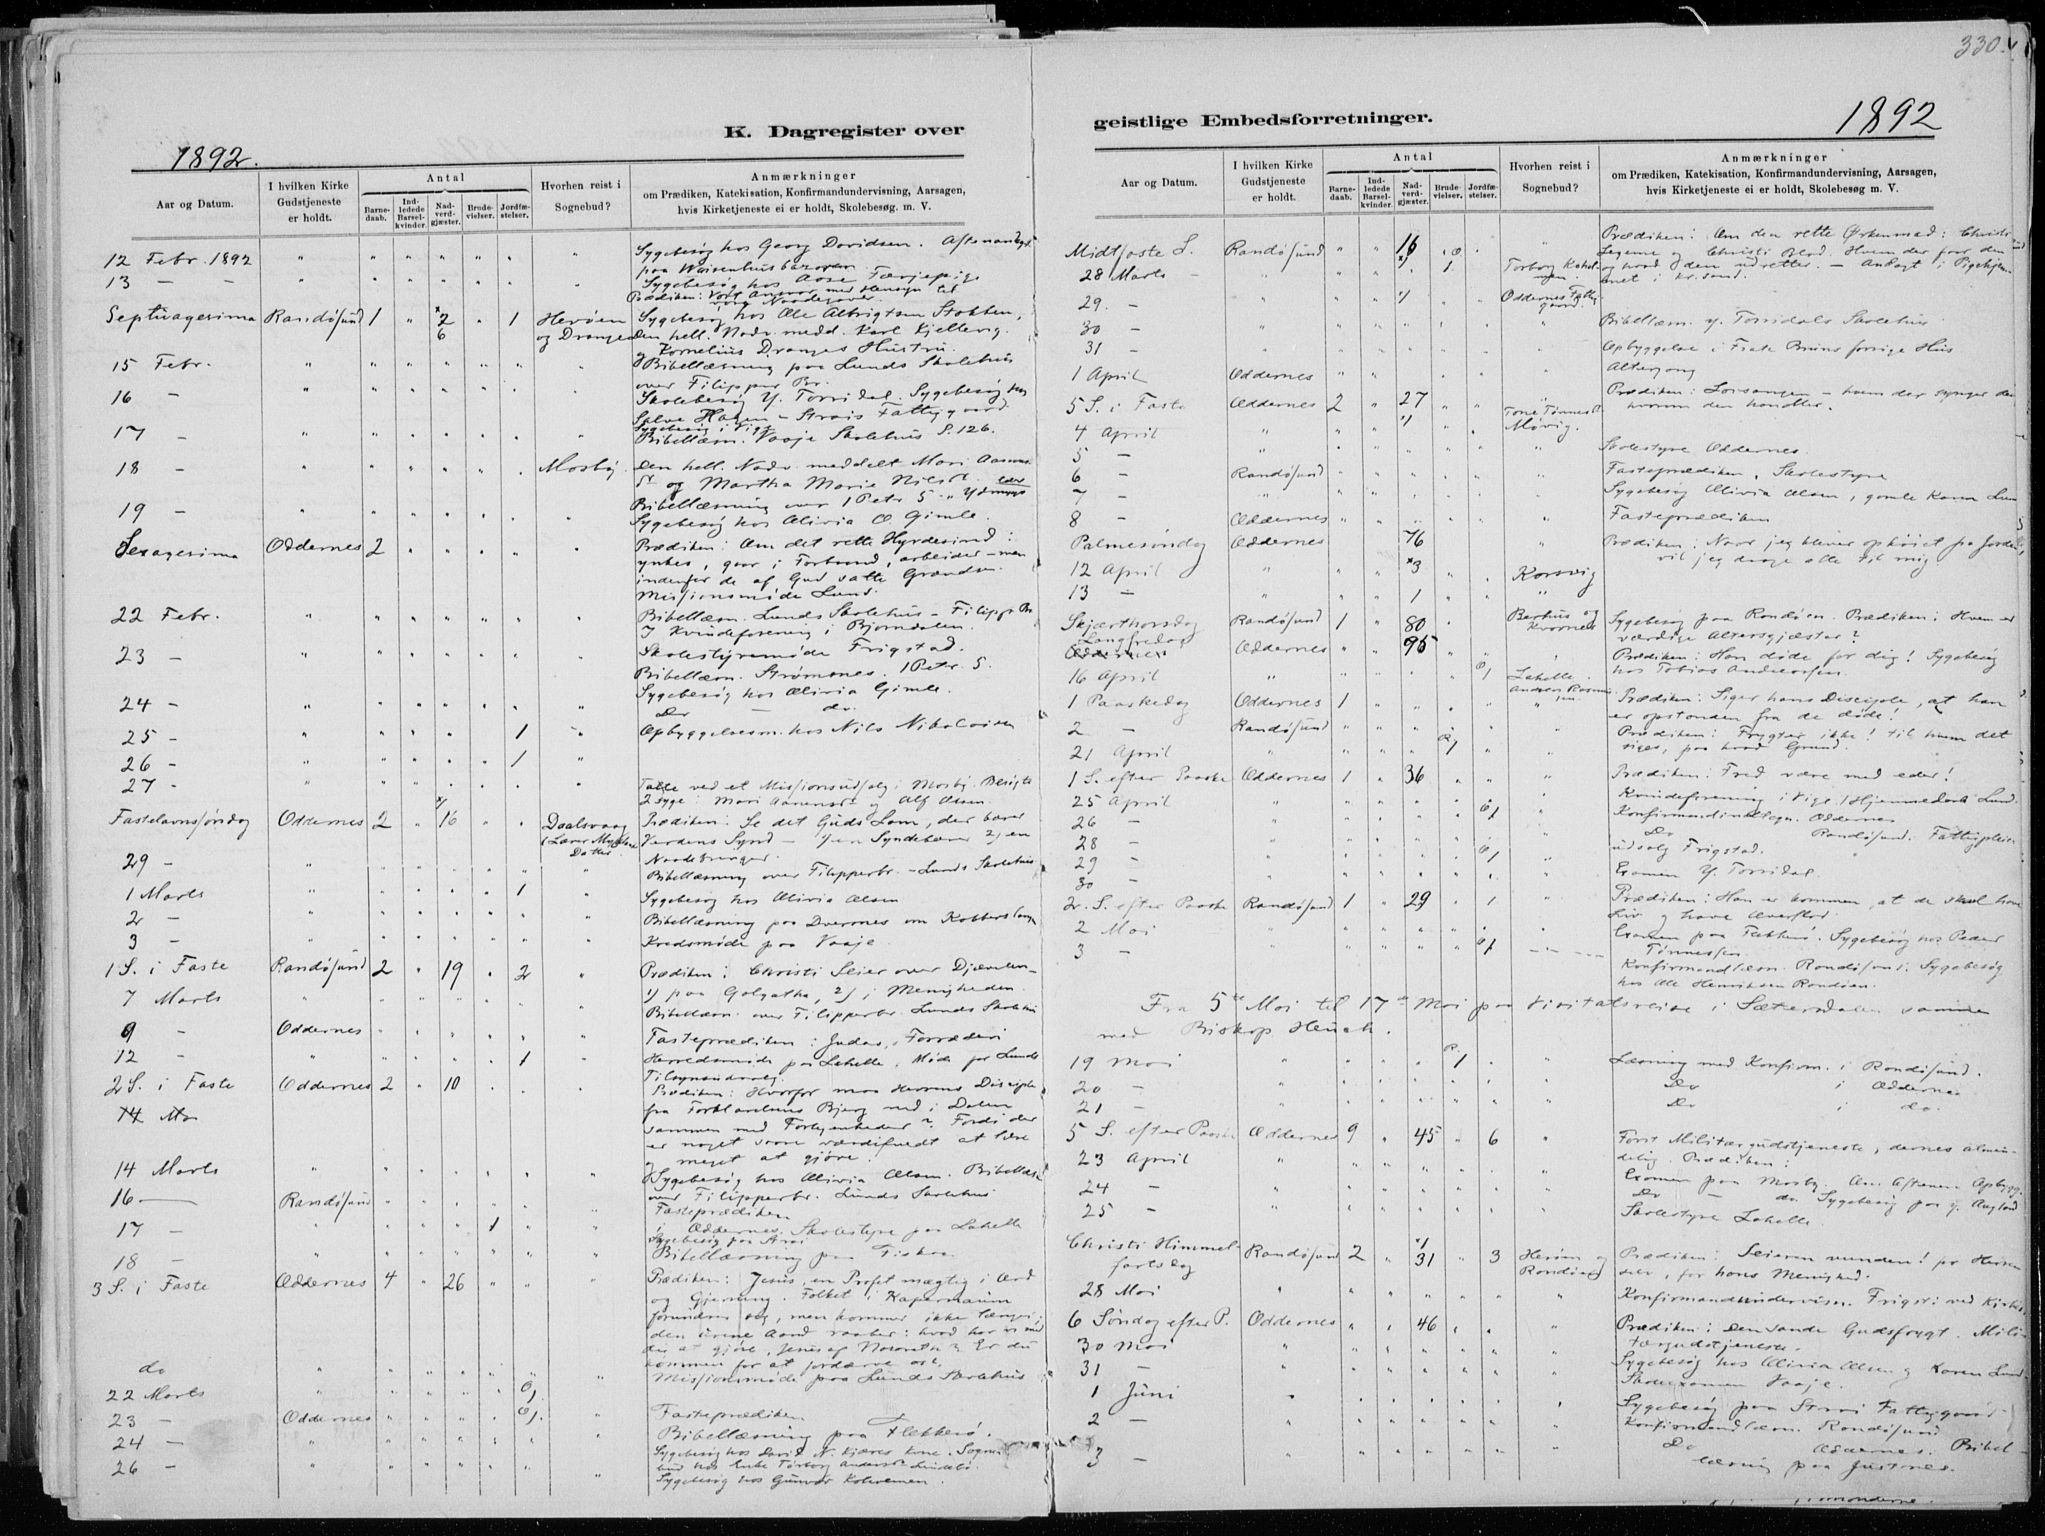 330.
K. Dagregister over
1892.
Aar og Datum. I hvilken Kirke Gudstjeneste er holdt. Antal Hvorhen reist i Sognebud? Anmærkninger
Barnedaab. Indledede Barselkvinder. Nadverdgjæster. Brudevielser. Jordfæstelser. om Prædiken, Katekisation, Konfirmandundervisning, Aarsagen, hvis Kirketjeneste ei er holdt, Skolebesøg m. V.
12 Febr. 1892 " " " " " " " Sygebesøg hos Georg Davidsen.
paa Waisenhusbazaren
13 - - " " " " " " " Sygebesøg hos Aase
Prædiken: Vort Ansvar med Hensyn til
vore Naadegaver.
Septuagesima Randøsund 1 " x2 " 1 Herøen Sygebesøg hos Ole Albrigtsen Stokken,
6 og Drange Den hell. Nadv. medd. Karl Kjelleng
og Kornelius Dranges Hustru.
15 Febr. " " " " " " " Bibellæsning paa Lunds Skolehus
over Filipper Br.
16 - " " " " " " " Skolebesøg Y. Torridal. Sygebesøg hos
Salve Hagen - Strais Fattiggaard.
Sygebesøg i Vige
17 - " " " " " " " Bibellæsn. Vaaje Skolehus S. 126.
18 - " " " " " " Mosby. Den hell. Nadv. meddelt Mari
og Martha Marie Nilsd.
Bibellæsning over 1 Petr 5
19 - " " " " " " " Sygebesøg hos Olivia O. Gimle.
Sexagesima Oddernes 2 " " " " " Prædiken: Om det rette Hyrdesind:
ynkes, gaar i Forbund, arbeider - men
indenfor de af Gud satte Grændser.
Missionsmøde Lund.
22 Febr. " " " " " " " Bibellæsn. Lunds Skolehus - Filipp. Br
Kvindeforening i Bjorndalen.
23 - " " " " " " " Skolestyremøde Frigstad.
Bibellæsn. Strømsnes. 1 Petr. 5.
Sygebesøg hos Olivia Gimle.
24 - " " " " " " " Do - do.
25 - " " " " " 1 " Opbyggelsesm. hos Nils Nikolaisen
26 - " " " " " 1
27 - " " " " " " " Talte ved et Missionsudsalg i Mosby. Besøgte
2 syge: Mari Aanensd. og Alf Olsen.
Fastelavnssøndag Oddernes 2 " 16 " " Daalsvaag Prædiken: Se det Guds Lam, der bærer
Verdens Synd - 1) en Syndebærer 2) en
Datter. Naadebringer.
29 - " " " " " " " Bibellæsning over Filipperbr. - Lunds Skolehus
1 Marts " " " " " 1 " Sygebesøg hos Olivia Olsen
2 - " " " " " " " Bibellæsning paa Dvernes om Kobberslangen
3 - " " " " " " " Kredsmøde paa Vaaje.
1 S. i Faste Randøsund 2 " 19 " 2 " Prædiken: Christi Seier over Djævelen -
1) paa Golgatha, 2) i Menigheden.
7 Marts " " " " " " " Bibellæsn. over Filipperbr. Lunds Skolehus
9 - Oddernes " " " " " " Fasteprædiken: Judas, Forræderi
12 - " " " " " 1 " Herredsmøde paa Lahelle. Møde for Lunds
Tilsynsudvalg.
2 S. i Faste Oddernes 2 " 10 " " " Prædiken: Hvorfor maa Herrens Disciple
14 Mar fra Forklarelsens Bjerg ned i Dalen
sammen med Forhenværende? Fordi der
er noget saare værdifuldt at lære
og meget at gjøre.
14 Marts " " " " " " " Sygebesøg hos Olivia Olsen. Bibellæsn.
over Filipperbr. Lunds Skolehus.
16 - Randøsund " " " " " " Fasteprædiken
17 - " " " " 1 " " i Oddernes. Skolestyre paa Lahelle
Sygebesøg paa Strai
18 - " " " " " " " Bibellæsning paa Fiskaa.
3 S. i Faste Oddernes 4 " 26 " " " Prædiken: Jesus, en Profet mægtig i Ord
og Gjerning. Folket i Kapernaum
forundrer sig, men kommer ikke længer;
den urene Aand raaber: hvad har vi med
dig at gjøre, Jesus af Nazareth? Er du
kommen for at fordærve os?
do " " " " " " " Missionsmøde paa Lunds Skolehus
22 Marts " " " " " 1
23 - Oddernes " " " " 1 " Fasteprædiken
24 - " " " " " " " Bibellæsning paa Flekkerø.
Sygebesøg hos David N. Kjæres Kone. Sogne-
26 - " " " " " " " bud hos Enke Torborg Andersd. Lindebø.
Sygebesøg hos Gunvor Kolsvemen.
geistlige Embedsforretninger.
1892
Aar og Datum. I hvilken Kirke Gudstjeneste er holdt. Antal Hvorhen reist i Sognebud? Anmærkninger
Barnedaab. Indledede Barselkvinder. Nadverdgjæster. Brudevielser. Jordfæstelser. om Prædiken, Katekisation, Konfirmandundervisning, Aarsagen, hvis Kirketjeneste ei er holdt, Skolebesøg m. V.
Midtfaste S. Randøsund " " 16 " " " Prædiken: Om den rette Ørkenmad: Christi
Legeme og Christi Blod. Hvem der faar den
28 Marts - " " " " " 1 Torborg og hvad den udretter. - Andagt i Pigehjem-
met i Kr.sand.
29. - " " " " " Oddernes Fattiggaard.
30 - " " " " " " " Bibellæsn. Y. Torridals Skolehus
31 - " " " " " " " Opbyggelse i Frøk. Bruns forrige Hus
1 April Oddernes " " " " " " Altergang
5 S. i Faste Oddernes 2 " 27 " " " Prædiken: Lovsangen - hvem der synger den
Tone Tønnesd. hvorom den handler.
4 April " " " " " " Møvig.
5 - " " " " " " " Skolestyre Oddernes.
6 - Randøsund " " " " " " Fasteprædiken. Skolestyre
7 - " " " " " " " Sygebesøg Olivia Olsen, gamle Karen Lund
8 - Oddernes " " " " " " Fasteprædiken
Palmesøndag Oddernes " " 76 " " " Prædiken: Naar jeg bliver ophøiet fra Jorden,
vil jeg drage alle til mig
12 April " " " x3 " " Korsvig
13 - " " " 1 " " "
Skjærthorsdag Randøsund 1 " 80 " " Berhus og Sygebesøg paa Randøen. Prædiken: Hvem er
Kvarnes værdige Altergjæster?
Langfredag Oddernes " " 95 " " " Prædiken: Han døde for dig! Sygebesøg
hos Tobias Andreassen.
16 April " " " " " 1 Lahelle.
1 Paaskedag Oddernes 1 " " " " " Prædiken: Siger hans Disciple, at han
er opstanden fra de døde!
2 - Randøsund " " " " " " Prædiken: Frygter ikke! til hvem det
21 April " " " " 1 " " siges, paa hvad Grund.
1 S. efter Paaske Oddernes 1 " 36 " " " Prædiken: Fred være med eder!
25 April " " " " " 1 " Kvindeforening i Vige.
26 - " " " " " " " Konfirmandindtegn. Oddernes
28 - " " " " " " " Do Randøsund.
29 - " " " " " 1 " udsalg Frigstad.
30 - " " " " " " " Examen Y. Torridal.
2. S. efter Paaske Randøsund 1 " 29 " 1 " Prædiken: Han er kommen, at de skal have
Liv og have Overflod.
2 Mai " " " " " " " Examen paa Flekkerø. Sygebesøg hos Peder
3 - " " " " " 1 - - Tønnessen.
Konfirmandlæsn. Randøsund. Sygebesøg
hos Ole Henriksen Randøen.
Fra 5te Mai til 17de Mai paa Visitatsreise i Sætersdalen sammen
med Biskop Heuch.
19 Mai " " " " 1 " " Læsning med Konfirm. i Randøsund.
20 - " " " " " " " Do i Oddernes
21 - " " " " " " " Do i do.
5 S. efter Paaske Oddernes 9 " 45 " 6 " Først Militærgudstjeneste, dernæst almin-
delig. Prædiken:
23 April " " " " " " "
24 - " " " " " " " Examen paa Mosby. Om Aftenen Opbygg.
25 - " " " " " " " Do - do. Sygebesøg paa y. Augland
Skolestyre Lahelle.
Christi Himmel- Randøsund 2 " 31 " 3 Herøen og Prædiken: Seieren vunden! for Herren
fartsdag Randøen selv, for hans Menighed.
28 Mai " " " " " " " Konfirmandundervisn. Frigst. ved Kirken
6 Søndag efter P. Oddernes " " 46 " " " Prædiken: Den sande Gudsfrygt. Mili-
30 Mai tærgudstjeneste.
31 - Sygebesøg hos Olivia Olsen og Karen Lund
1 Juni " Skoleexamen Vaaje.
2 - " " " " " " " Sygebesøg paa Strai Fattiggaard
Konfirmandlæsn. Randøsund
3 - " " " " " " " Do Oddernes. Bibel-
læsning paa Justnes.